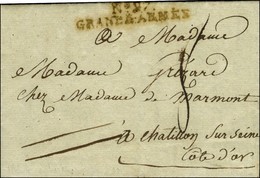 GRANDE ARMÉE
A Madame
Madame Grézard
Chez Madame de Marmont
à chatillon sur seine
Cote d'or